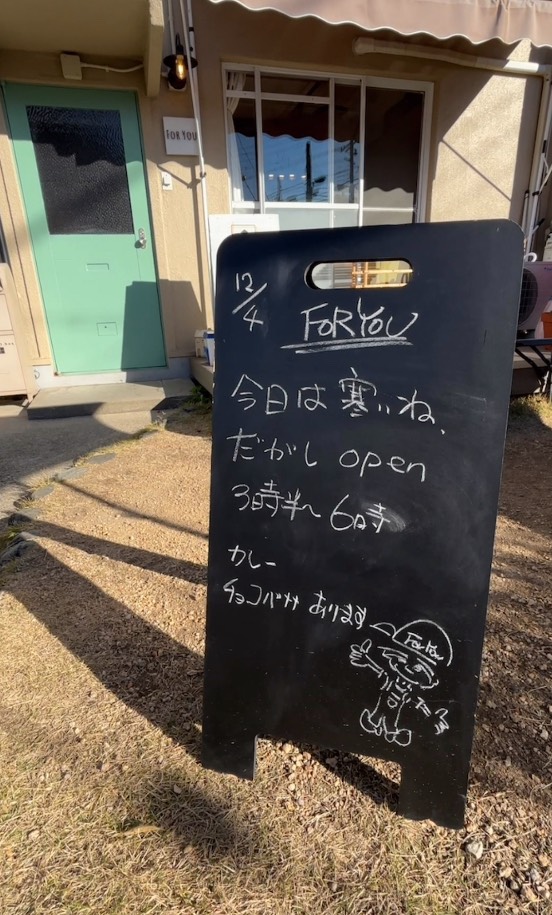 FOR YOU
12/4
FOR YOU
今日は寒いね、
だがし open
3時半〜6時
カレー
チョコバナナ あります
For You